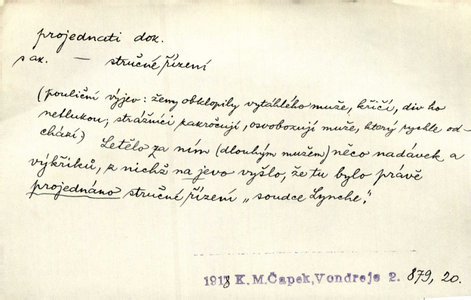 projednati dok.
sax. — stručné řízení
(pouliční výjev: ženy obklopily vytáhlého muže, křičí, div ho
netlukou, strážníci zakročují, osvobozují muže, který rychle od-
chází) Letělo za ním (dlouhým mužem) něco nadávek a
výkřiků, z nichž na jevo vyšlo, že tu bylo právě
projednáno struční řízení „soudce Lynche“!
1918 K. M. Čapek, Vondrejc 2. 879, 20.